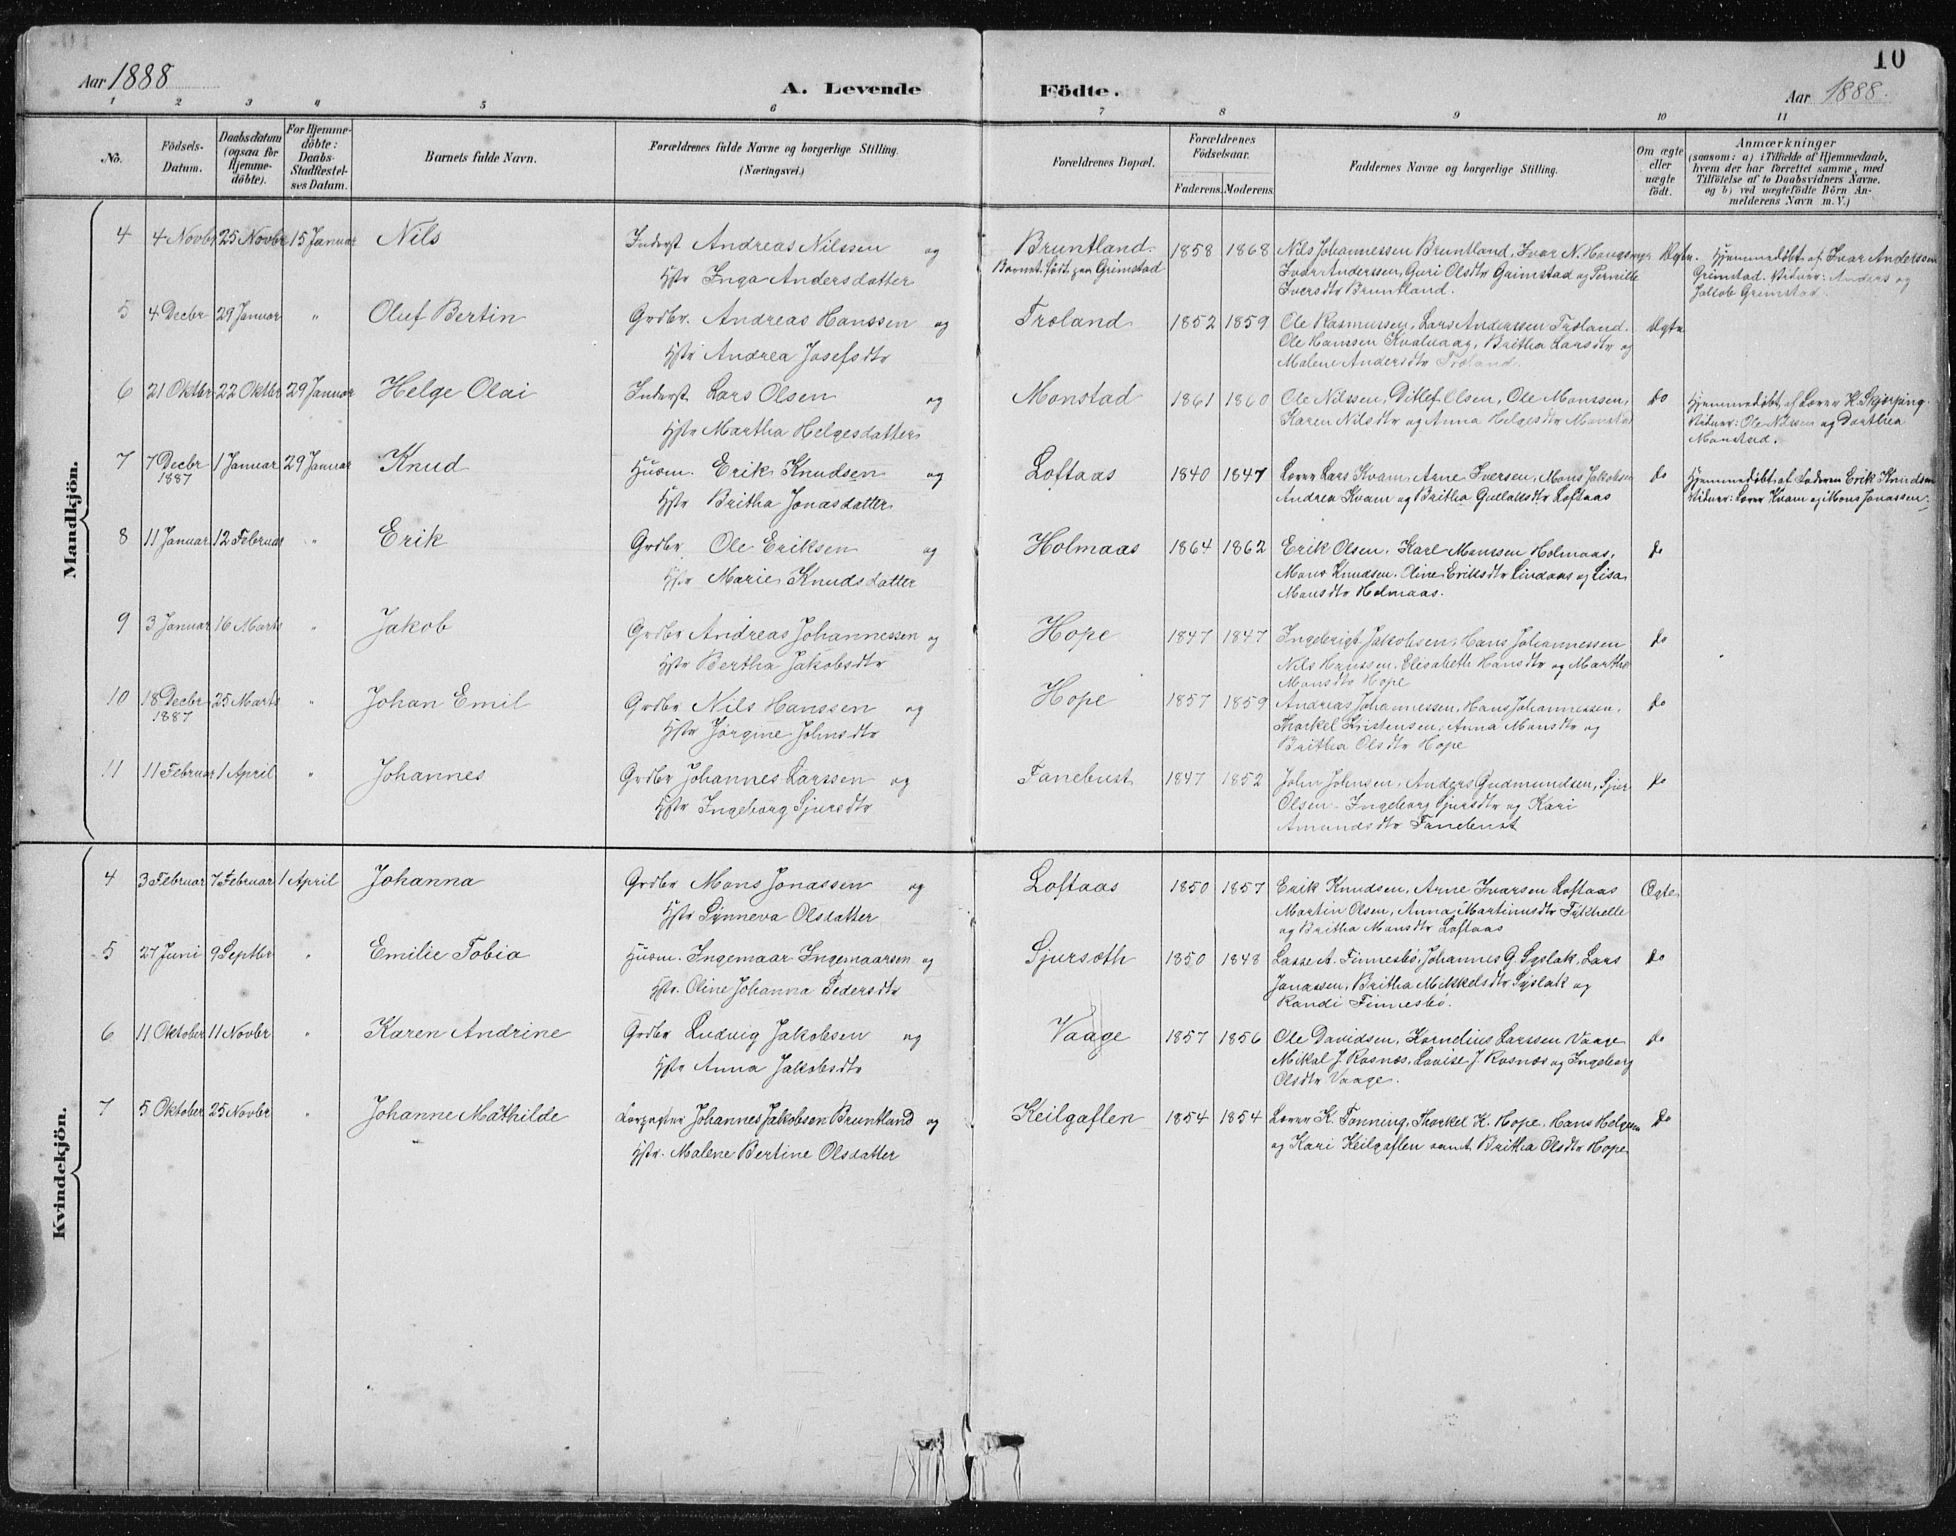 10
Aar 1888
A. Levende Födte.
Aar 1888.
1 2 3 4 5 6 7 8 9 10 11
No.
Födsels-Datum.
Daabsdatum (ogsaa for Hjemmedöbte).
For Hjemmedöbte: Daabs-Stadfæstelses Datum.
Barnets fulde Navn.
Forældrenes fulde Navne og borgerlige Stilling. (Næringsvei.)
Forældrenes Bopæl.
Forældrenes Födselsaar. Faderens. Moderens.
Faddernes Navne og borgerlige Stilling.
Om ægte eller uægte födt.
Anmærkninger (saasom: a) i Tilfælde af Hjemmedaab, hvem der har forrettet samme, med Tilföielse af to Daabsvidners Navne, og b) ved uægtefödte Börn Anmelderens Navn m. V.)
Mandkjön.
4 4 Novbr 25 Novbr 15 Januar Nils Inderst Andreas Nilssen og Bruntland. 1858 1868 Nils Johannessen Bruntland, Ivar N. Haugsmyr Ægte. Hjemmedöbt af Ivar Anderssen
Hstr Inga Andersdatter Barnet födt paa Grimstad Ivar Anderssen, Guri Olsdtr Grimstad og Pernille Grimstad. Vidner: Anders og
Iversdtr Bruntland. Jakob Grimstad.
5 4 Decbr 29 Januar " Oluf Bertin Grdbr. Andreas Hanssen og Træland 1852 1859 Ole Rasmussen, Lars Anderssen Træland. Ægte
Hstr Andrea Josefsdtr Ole Hanssen Kvalvaag, Britha Larsdtr og
Malene Andersdtr Træland.
6 21 Oktbr 22 Oktbr 29 Januar Helge Olai Inderst Lars Olsen og Monstad 1861 1860 Ole Nilssen, Ditlef Olsen, Ole Monssen, do Hjemmedöbt af Lærer K. Skjerping.
Hstr Martha Helgesdatter Karen Nilsdtr og Anna Helgesdtr Monstad Vidner: Ole Nilssen og Dorthea
Monstad.
7 7 Decbr 1 Januar 29 Januar Knud Husm. Erik Knudsen og Loftaas 1840 1847 Lærer Lars Kvam, Arne Iversen, Mons Jakobsen do Hjemmedöbt af Faderen Erik Knudsen
1887 Hstr Britha Jonasdatter Andrea Kvam og Britha Gullaksdtr Loftaas Vidner: Lærer Kvam og Mons Jonassen
8 11 Januar 12 Februar " Erik Grdbr. Ole Eriksen og Holmaas 1864 1862 Erik Olsen, Karl Monssen Holmaas, do
Hstr Marie Knudsdatter Mons Knudsen, Oline Eriksdtr Lindaas og Lisa
Monsdtr Holmaas.
9 3 Januar 16 Marts " Jakob Grdbr Andreas Johannessen og Hope 1847 1847 Ingebrigt Jakobsen, Hans Johannessen do
Hstr Bertha Jakobsdtr Nils Hanssen, Elisabeth Hansdtr og Martha
Monsdtr Hope
10 18 Decbr 25 Marts " Johan Emil Grdbr Nils Hanssen og Hope 1857 1859 Andreas Johannessen, Hans Johannessen, do
1887 Hstr Jørgine Johnsdtr Thorkel Kristensen, Anna Monsdtr og
Britha Olsdtr Hope
11 11 Februar 1 April " Johannes Grdbr Johannes Larssen og Fanebust 1847 1852 John Johnsen, Anders Gudmundsen, Sjur do
Hstr Ingeborg Sjursdtr Olsen, Ingeborg Sjursdtr og Kari
Amundsdtr Fanebust
Kvindekjön.
4 3 Februar 7 Februar 1 April Johanna Grdbr Mons Jonassen og Loftaas 1850 1857 Erik Knudsen, Arne Ivarsen Loftaas Ægte
Hstr Synneva Olsdatter Martin Olsen, Anna Martinusdtr Fykhelle
og Britha Monsdtr Loftaas
5 27 Juni 9 Septbr " Emilie Tobia Husm. Ingemaar Ingemaarsen og Sjursæth 1850 1848 Lasse A. Finnesbö, Johannes G. Syslak, Lars do
Hstr. Oline Johanna Pedersdtr Jonassen, Britha Mikkelsdtr Syslak og
Randi Finnesbö.
6 11 Oktober 11 Novbr " Karen Andrine Grdbr Ludvig Jakobsen og Vaage 1857 1856 Ole Davidsen, Kornelius Larssen Vaage do
Hstr Anna Jakobsdtr Mikal J. Rosnæs, Lovise J. Rosnæs og Ingeborg
Olsdtr Vaage.
7 5 Oktober 25 Novbr " Johanne Mathilde Johannes Jakobsen Bruntland og Keilgaflen 1854 1854 Lærer K. Tonning, Thorkel K. Hope, Hans Helgesen do
Hstr. Malene Bertine Olsdatter og Kari Keilgaflen samt Britha Olsdtr Hope.